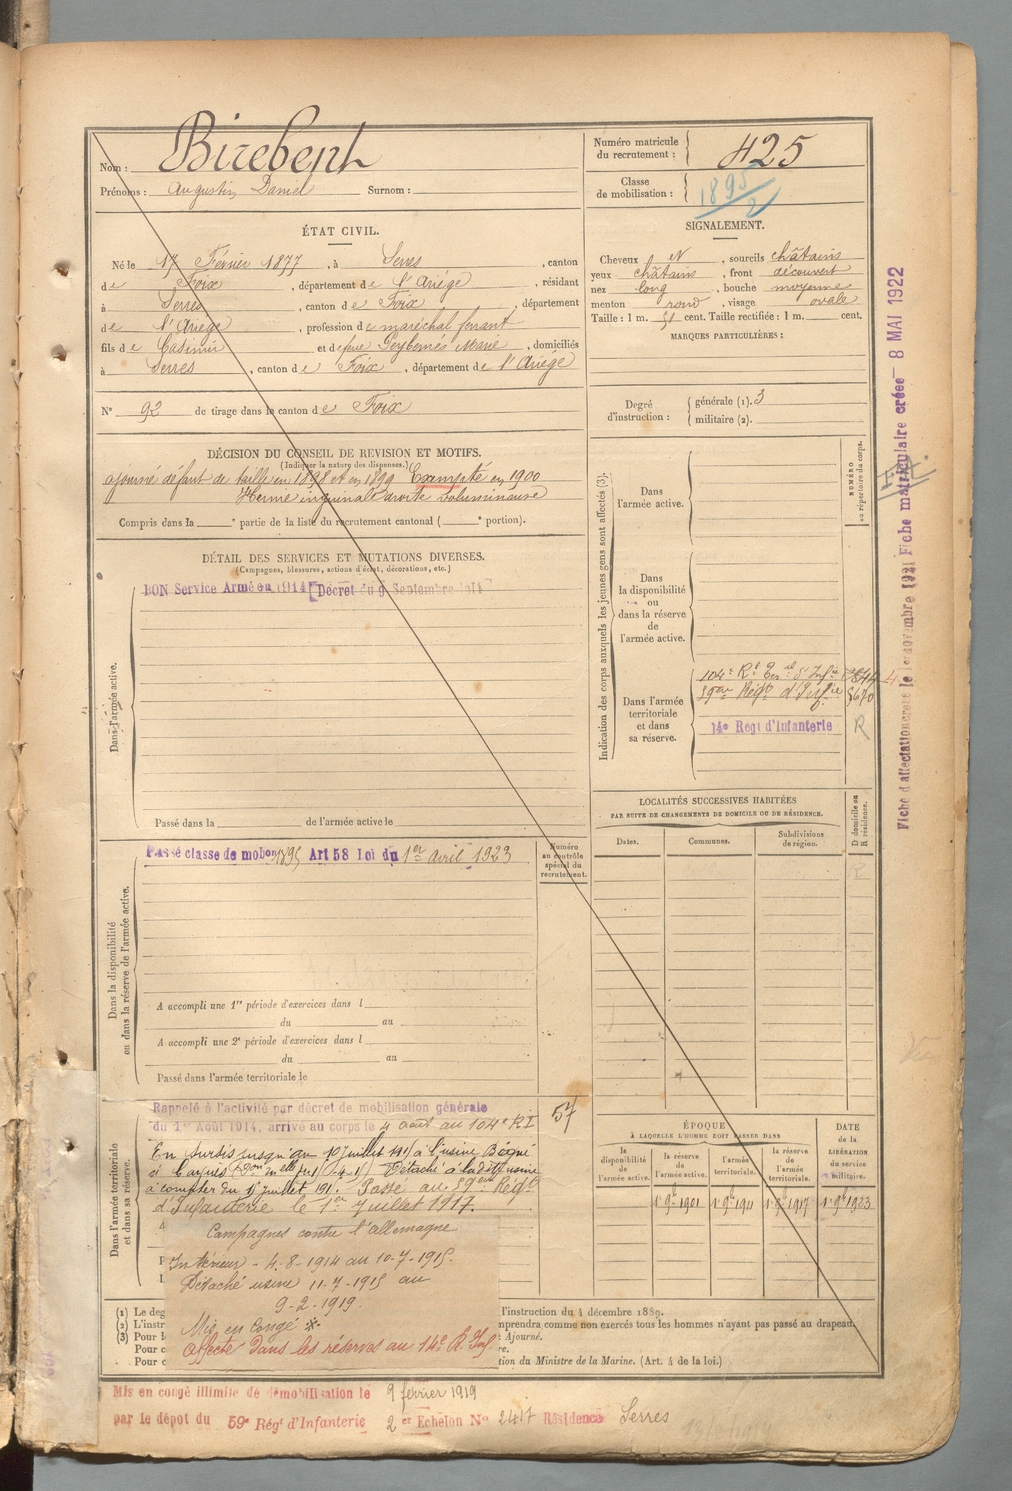 Nom : Birebent
Prénoms : Augustin Daniel Surnom :
Numéro matricule du recrutement : 425
Classe de mobilisation : 1895/2
ÉTAT CIVIL.
Né le 17 Février 1877, à Serres, canton
de Foix, département de l'Ariége, résidant
à Serres, canton de Foix, département
de l'Ariége, profession de maréchal ferrant
fils de Casimir et de feue Marie, domiciliés
à Serres, canton de Foix, département de l'Ariége
N° 92 de tirage dans le canton de Foix
SIGNALEMENT.
Cheveux N, sourcils châtains
yeux châtains, front découvert
nez long, bouche moyenne
menton rond, visage ovale
Taille : 1 m. 51 cent. Taille rectifiée : 1 m. cent.
MARQUES PARTICULIÈRES :
Degré d'instruction : générale (1). 3
militaire (2).
DÉCISION DU CONSEIL DE REVISION ET MOTIFS.
(Indiquer la nature des dispenses.)
ajourné défaut de taille en 1898 et en 1899 Exempté en 1900
Hernie inguinale droite volumineuse
Compris dans la e partie de la liste du recrutement cantonal ( e portion).
DÉTAIL DES SERVICES ET MUTATIONS DIVERSES.
(Campagnes, blessures, actions d'éclat, décorations, etc.)
Dans l'armée active.
BON Service Armé en 1914 [Décret du 9 Septembre 1914
Passé dans la de l'armée active le
Indication des corps auxquels les jeunes gens sont affectés (3).
NUMÉRO au répertoire du corps.
Dans l'armée active.
Dans la disponibilité ou dans la réserve de l'armée active.
Dans l'armée territoriale et dans sa réserve.
59eme Régt d'Infie 5670
14e Regt d'Infanterie R
Fiche matriculaire créée 8 MAI 1922
LOCALITÉS SUCCESSIVES HABITÉES
PAR SUITE DE CHANGEMENTS DE DOMICILE OU DE RÉSIDENCE.
Dates. Communes. Subdivisions de région.
D domicile ou R résidence.
Dans la disponibilité ou dans la réserve de l'armée active.
Numéro au contrôle spécial du recrutement.
Passé classe de mobon 1895 Art 58 Loi du 1er avril 1923
A accompli une 1re période d'exercices dans l
du au
A accompli une 2e période d'exercices dans l
du au
Passé dans l'armée territoriale le
Dans l'armée territoriale et dans sa réserve.
57
Rappelé à l'activité par décret de mobilisation générale
du 1er Août 1914, arrivé au corps le 4 août au 104e RI
En sursis jusqu'au 10 juillet à l'usine
Détaché à ladite usine
à compter du juillet 191. Passé au 59eme Régt
d'Infanterie le 1er Juillet 1917.
Campagnes contre l'allemagne
Intérieur - 4-8-1914 au 10-7-1915.
Détaché usine 11-7-1915 au
9-2-1919.
Mis en congé
affecté dans les réserves au 14e R. Inf.
ÉPOQUE
À LAQUELLE L'HOMME DOIT PASSER DANS
la disponibilité de l'armée active. la réserve de l'armée active. l'armée territoriale. la réserve de l'armée territoriale.
DATE de la LIBÉRATION du service militaire.
1er 9bre 1901 1er 9bre 1911 1er 9bre 1917 1er 9bre 1923
(1) Le deg
l'instruction du 4 décembre 1889.
(2) L'instr
mprendra comme non exercés tous les hommes n'ayant pas passé au drapeau.
(3) Pour l
: Ajourné.
Pour c
re.
Pour c
tion du Ministre de la Marine. (Art. 4 de la loi.)
Mis en congé illimité de démobilisation le 9 février 1919
par le dépot du 59e Régt d'Infanterie 2er Echelon No 2417 Résidence Serres